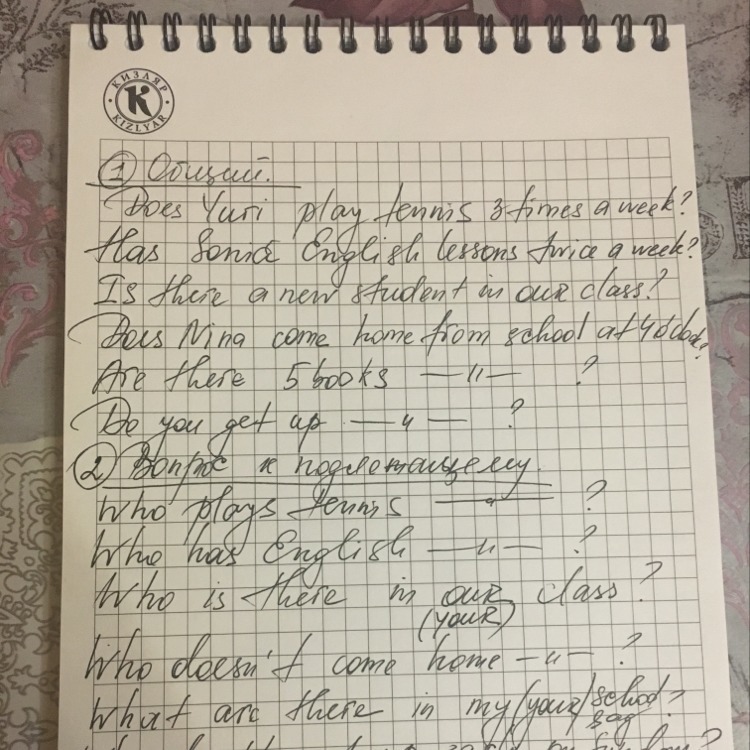 КИЗЛЯР
К
KIZLYAR
1 Общий.
Does Yuri play tennis 3 times a week?
Has Sonia English lessons twice a week?
Is there a new student in our class?
Does Nina come home from school at 4 o'clock?
Are there 5 books —〃— ?
Do you get up —〃— ?
2 Вопрос к подлежащему.
Who plays tennis —〃— ?
Who has English —〃— ?
Who is there in our class?
(your)
Who doesn't come home —〃— ?
What are there in my/your/school?
bag